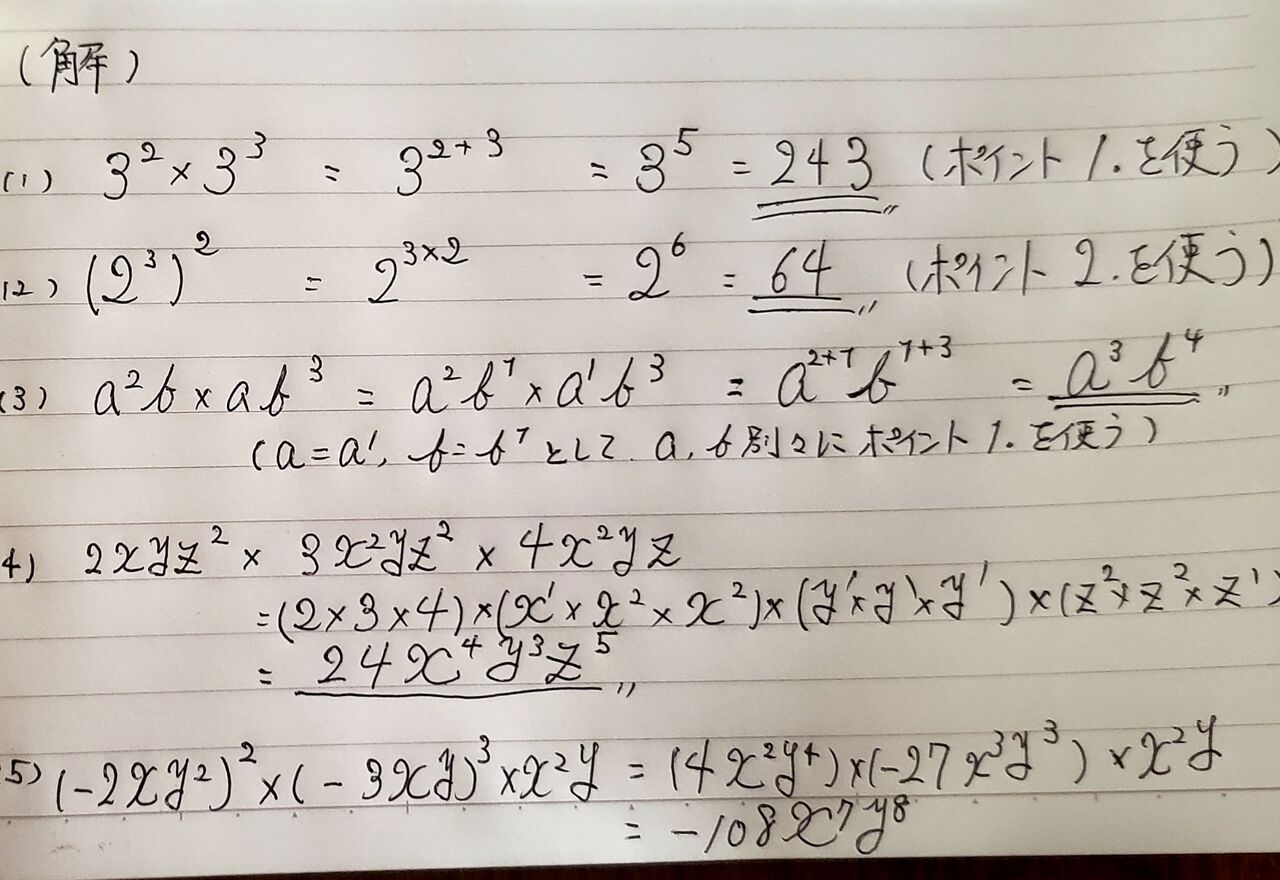 (解)
(1) 3² × 3³ = 3²⁺³ = 3⁵ = 243 (ポイント 1. を使う)
(2) (2³)² = 2³ˣ² = 2⁶ = 64 (ポイント 2. を使う)
(3) a²b × ab³ = a²b¹ × a¹b³ = a²⁺¹b¹⁺³ = a³b⁴
(a = a¹, b = b¹ として. a, b 別々に ポイント 1. を使う)
4) 2xyz² × 3x²yz² × 4x²yz
= (2×3×4)×(x¹×x²×x²)×(y¹×y¹×y¹)×(z²×z²×z¹)
= 24x⁴y³z⁵
5) (-2xy²)²×(-3xy)³×x²y = (4x²y⁴)×(-27x³y³)×x²y
= -108x⁷y⁸